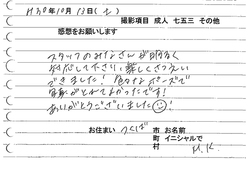 H30年10月13日(土)
撮影項目 成人 七五三 その他
感想をお願いします
スタッフのみなさんが明るく
対応して下さり楽しくさつえい
できました！色々なポーズで
写真がとれてよかったです！
ありがとうございました
お住まい つくば 市 お名前
町 イニシャルで
村 M.K.